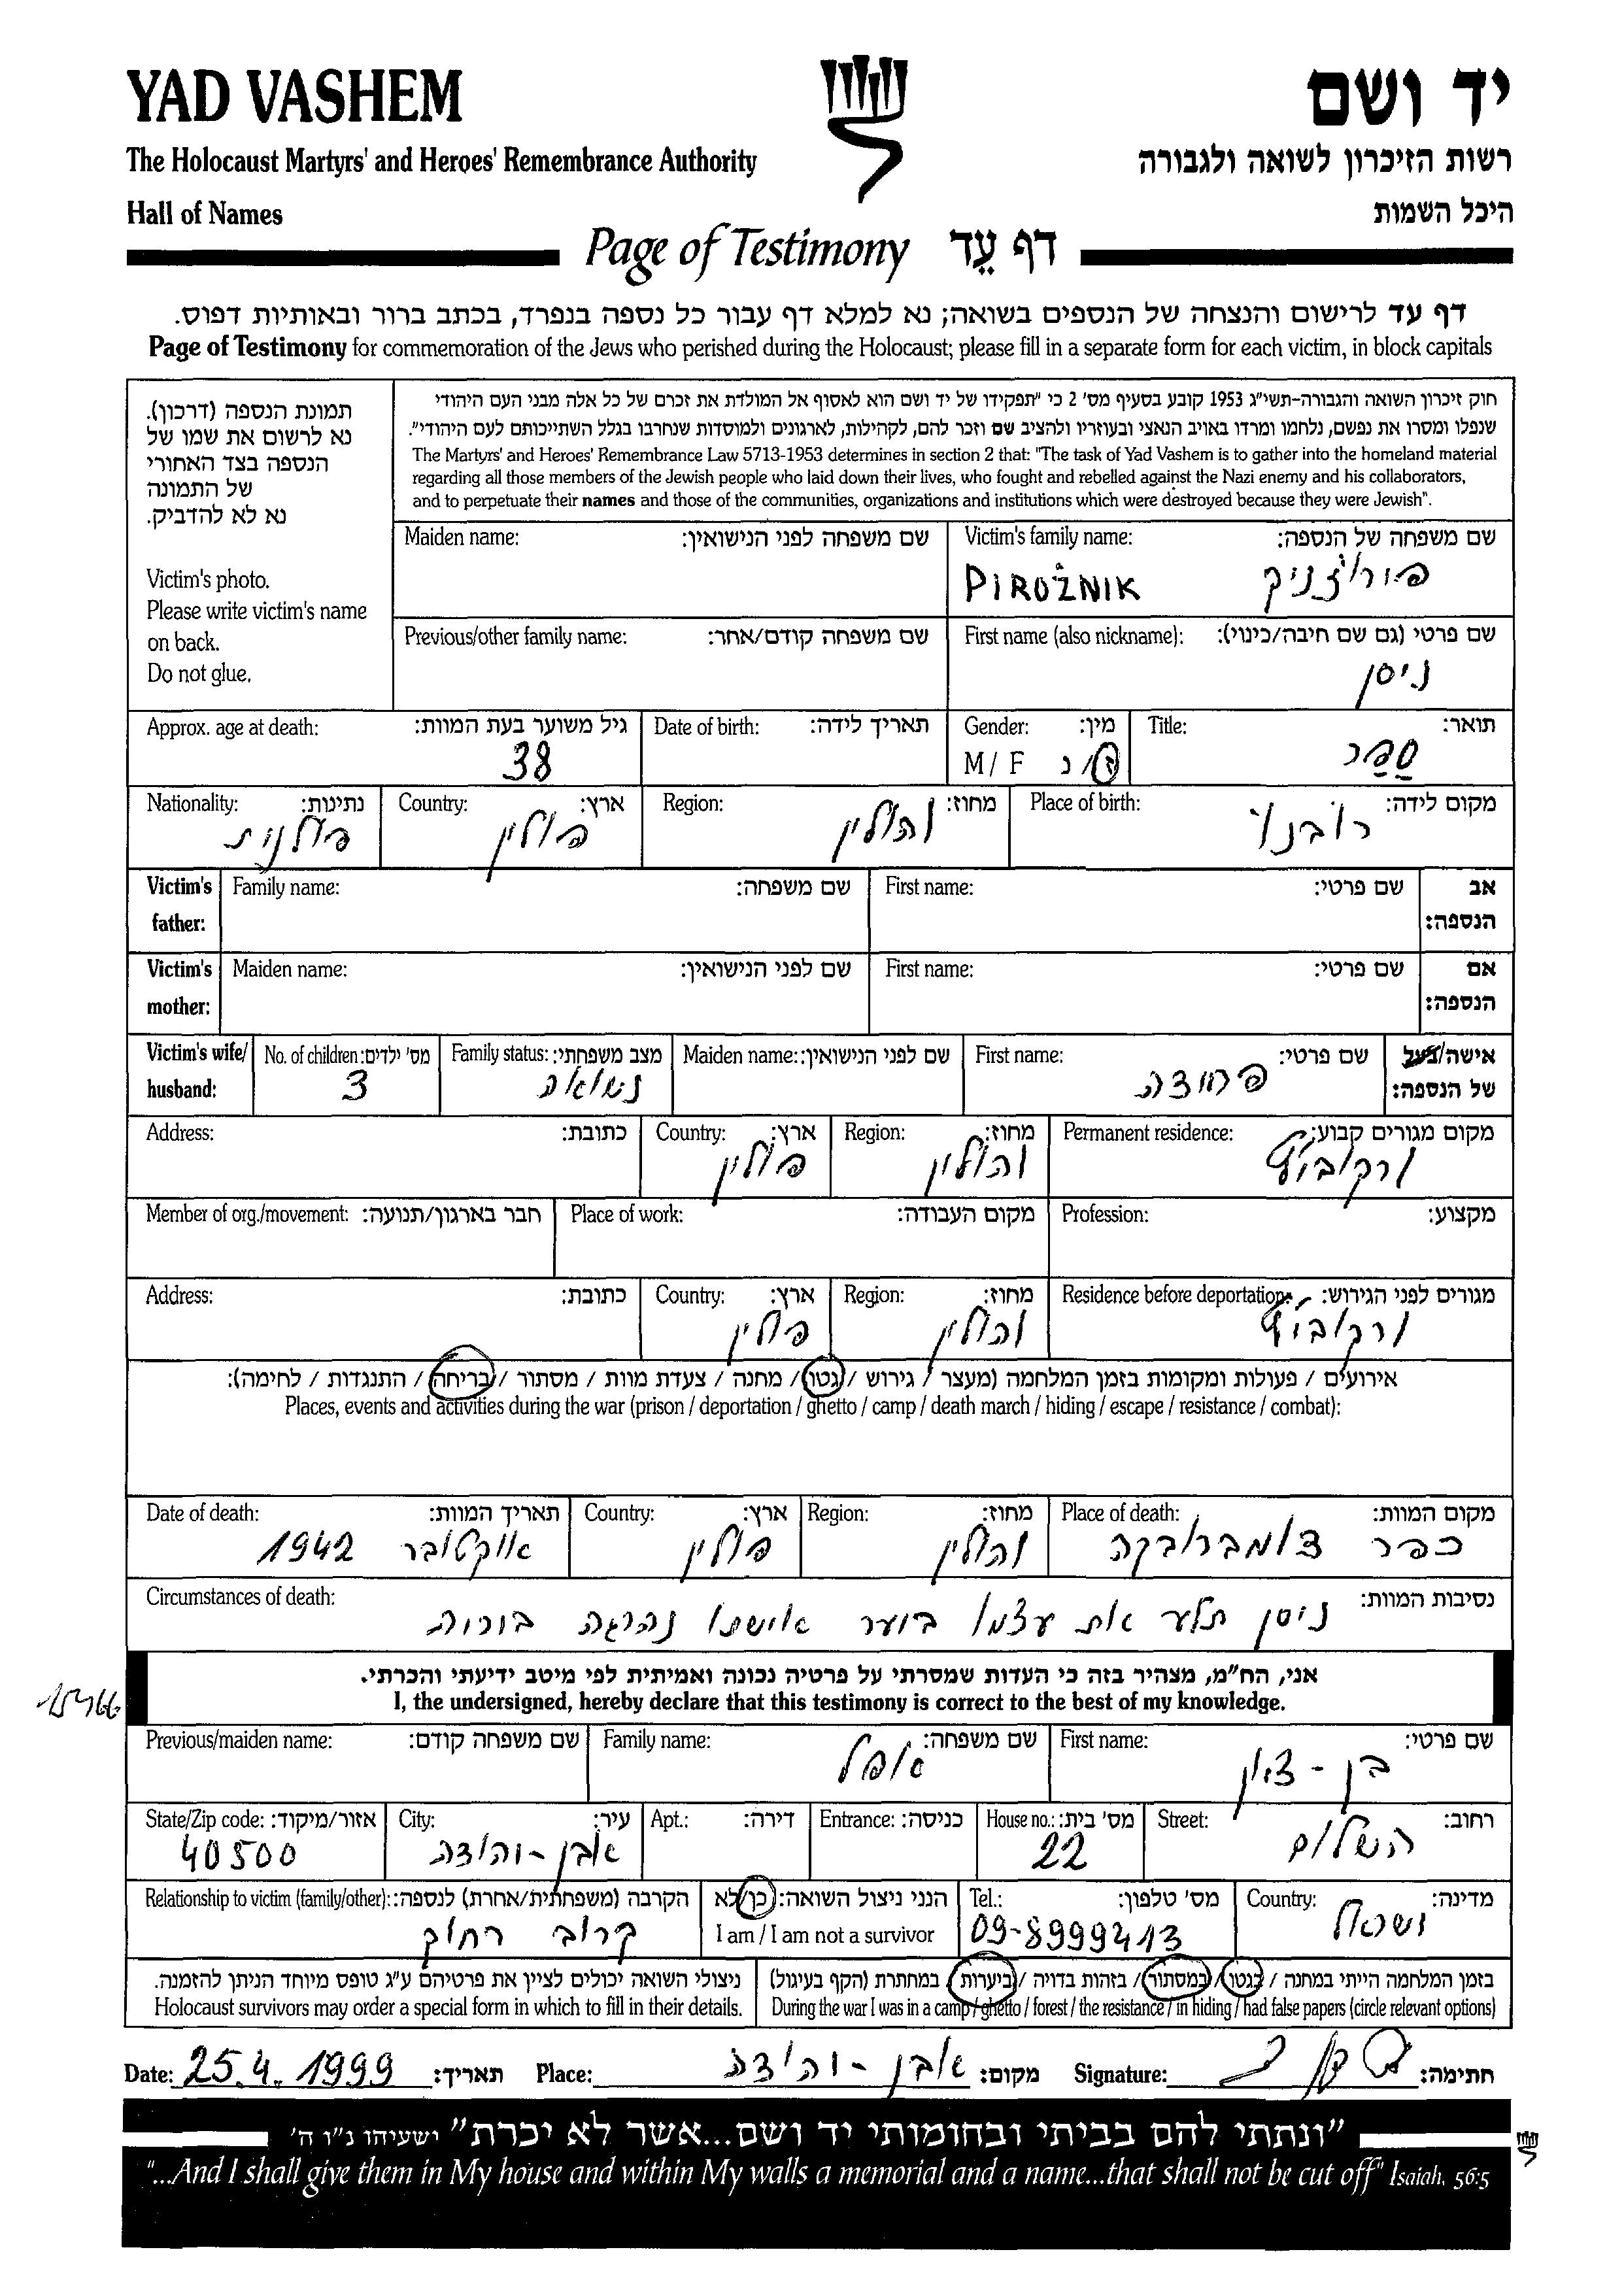 YAD VASHEM
יד ושם
The Holocaust Martyrs' and Heroes' Remembrance Authority
רשות הזיכרון לשואה ולגבורה
Hall of Names
היכל השמות
Page of Testimony דף עֵד
דף עד לרישום והנצחה של הנספים בשואה; נא למלא דף עבור כל נספה בנפרד, בכתב ברור ובאותיות דפוס.
Page of Testimony for commemoration of the Jews who perished during the Holocaust; please fill in a separate form for each victim, in block capitals
תמונת הנספה (דרכון).
נא לרשום את שמו של
הנספה בצד האחורי
של התמונה
נא לא להדביק.
Victim's photo.
Please write victim's name
on back.
Do not glue.
חוק זיכרון השואה והגבורה-תשי"ג 1953 קובע בסעיף מס' 2 כי "תפקידו של יד ושם הוא לאסוף אל המולדת את זכרם של כל אלה מבני העם היהודי
שנפלו ומסרו את נפשם, נלחמו ומרדו באויב הנאצי ובעוזריו ולהציב שם וזכר להם, לקהילות, לארגונים ולמוסדות שנחרבו בגלל השתייכותם לעם היהודי".
The Martyrs' and Heroes' Remembrance Law 5713-1953 determines in section 2 that: "The task of Yad Vashem is to gather into the homeland material
regarding all those members of the Jewish people who laid down their lives, who fought and rebelled against the Nazi enemy and his collaborators,
and to perpetuate their names and those of the communities, organizations and institutions which were destroyed because they were Jewish".
Maiden name: שם משפחה לפני הנישואין: Victim's family name: שם משפחה של הנספה:
PIROŻNIK פירוז'ניק
Previous/other family name: שם משפחה קודם/אחר: First name (also nickname): שם פרטי (גם שם חיבה/כינוי):
ניסן
Approx. age at death: גיל משוער בעת המוות: Date of birth: תאריך לידה: Gender: מין: Title: תואר:
38 M/ F ז/נ ספר
Nationality: נתינות: Country: ארץ: Region: מחוז: Place of birth: מקום לידה:
פולנית פולין ווהלין רובנו
Victim's father: Family name: שם משפחה: First name: שם פרטי: אב הנספה:
Victim's mother: Maiden name: שם לפני הנישואין: First name: שם פרטי: אם הנספה:
Victim's wife/ No. of children: מס' ילדים: Family status: מצב משפחתי: Maiden name: שם לפני הנישואין: First name: שם פרטי: אישה/בעל
husband: 3 נשואה פרידה של הנספה:
Address: כתובת: Country: ארץ: Region: מחוז: Permanent residence: מקום מגורים קבוע:
פולין ווהלין
Member of org./movement: חבר בארגון/תנועה: Place of work: מקום העבודה: Profession: מקצוע:
Address: כתובת: Country: ארץ: Region: מחוז: Residence before deportation: מגורים לפני הגירוש:
פולין ווהלין
אירועים / פעולות ומקומות בזמן המלחמה (מעצר / גירוש / גטו / מחנה / צעדת מוות / מסתור / בריחה / התנגדות / לחימה):
Places, events and activities during the war (prison / deportation / ghetto / camp / death march / hiding / escape / resistance / combat):
Date of death: תאריך המוות: Country: ארץ: Region: מחוז: Place of death: מקום המוות:
אוקטובר 1942 פולין ווהלין כפר דומברובקה
Circumstances of death: נסיבות המוות:
ניסן תלה את עצמו ביער אישתו נהרגה
אני, הח"מ, מצהיר בזה כי העדות שמסרתי על פרטיה נכונה ואמיתית לפי מיטב ידיעתי והכרתי.
I, the undersigned, hereby declare that this testimony is correct to the best of my knowledge.
Previous/maiden name: שם משפחה קודם: Family name: שם משפחה: First name: שם פרטי:
אפל בן-ציון
State/Zip code: אזור/מיקוד: City: עיר: Apt.: דירה: Entrance: כניסה: House no.: מס' בית: Street: רחוב:
40500 אבן-יהודה 22 השלום
Relationship to victim (family/other): הקרבה (משפחתית/אחרת) לנספה: הנני ניצול השואה: כן/לא Tel.: מס' טלפון: Country: מדינה:
קרוב רחוק I am / I am not a survivor 09-8999413 ישראל
ניצולי השואה יכולים לציין את פרטיהם ע"ג טופס מיוחד הניתן להזמנה. בזמן המלחמה הייתי במחנה / בגטו / במסתור / בזהות בדויה / ביערות / במחתרת (הקף בעיגול)
Holocaust survivors may order a special form in which to fill in their details. During the war I was in a camp / ghetto / forest / the resistance / in hiding / had false papers (circle relevant options)
Date: 25.4.1999 תאריך: Place: אבן-יהודה מקום: Signature: חתימה:
"ונתתי להם בביתי ובחומותי יד ושם...אשר לא יכרת" ישעיהו נ"ו ה'
"...And I shall give them in My house and within My walls a memorial and a name...that shall not be cut off" Isaiah, 56:5